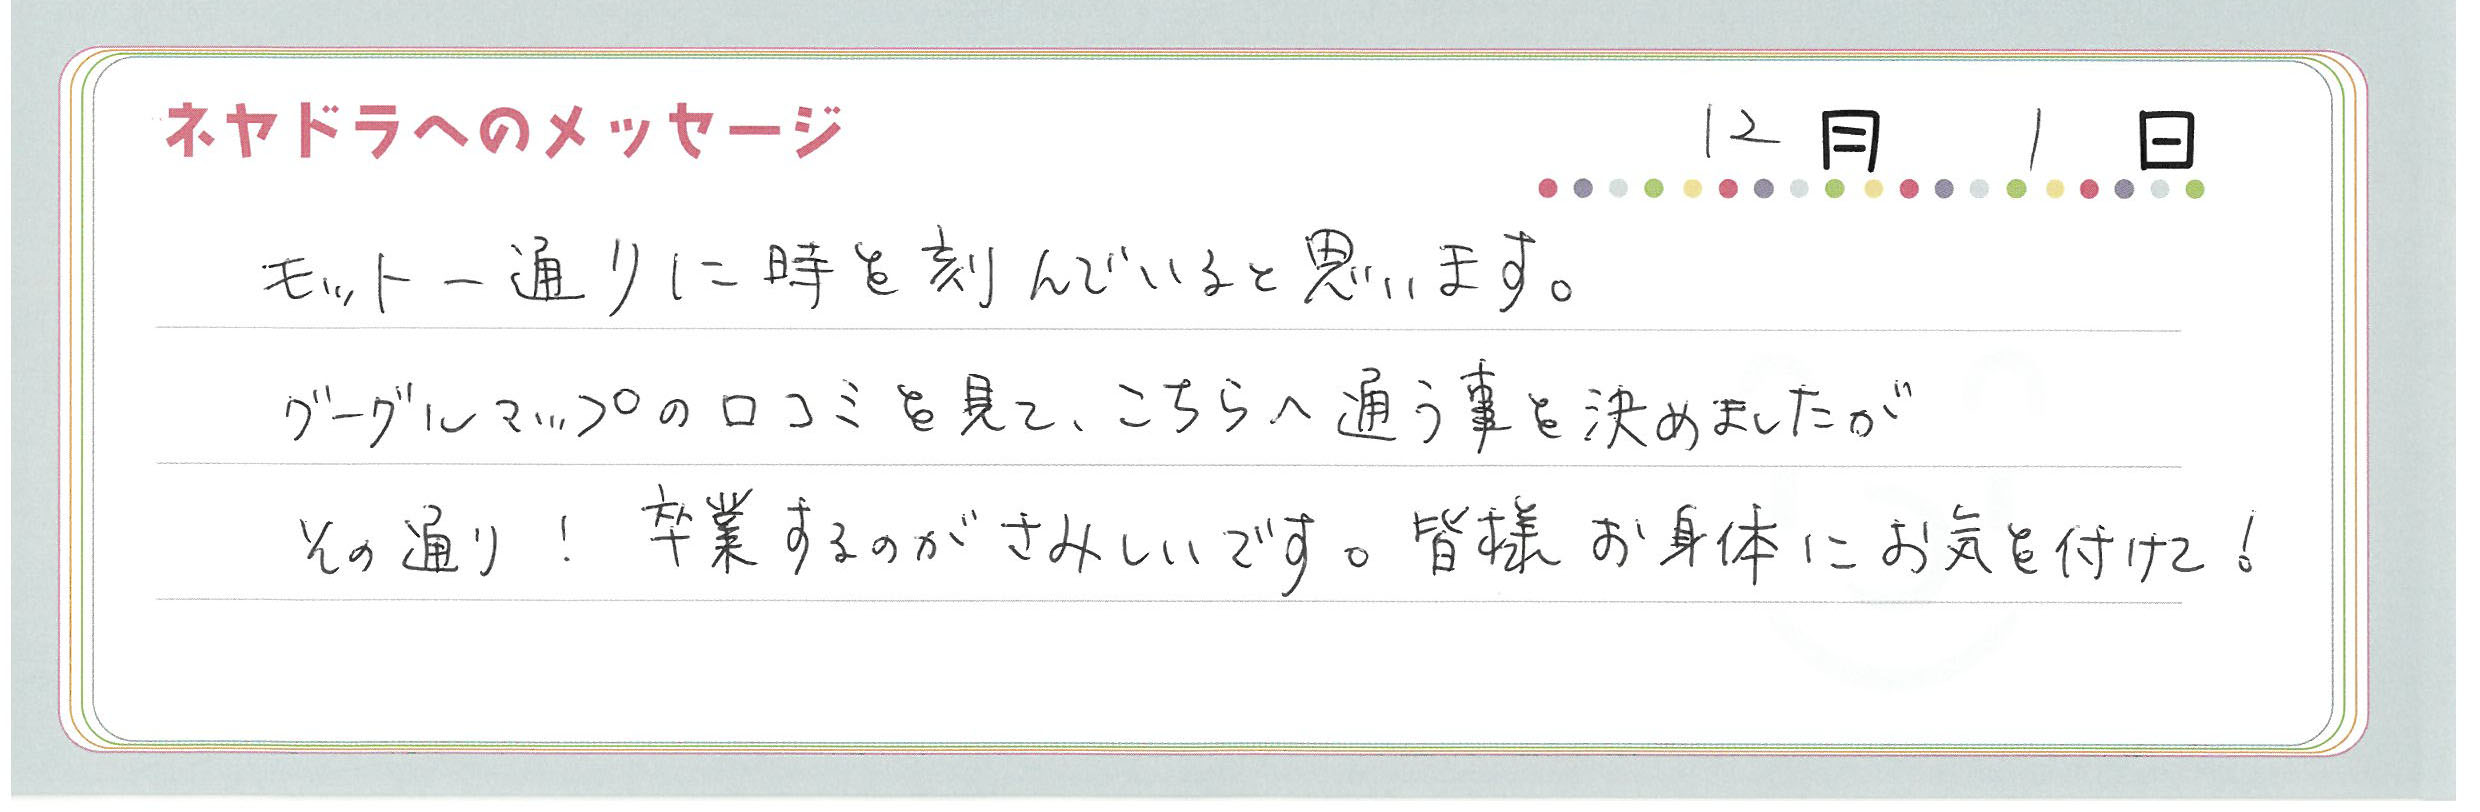 ネヤドラへのメッセージ
12月 1日
モットー通りに時を刻んでいると思います。
グーグルマップの口コミを見て、こちらへ通う事を決めましたが
その通り! 卒業するのがさみしいです。皆様お身体にお気を付けて!